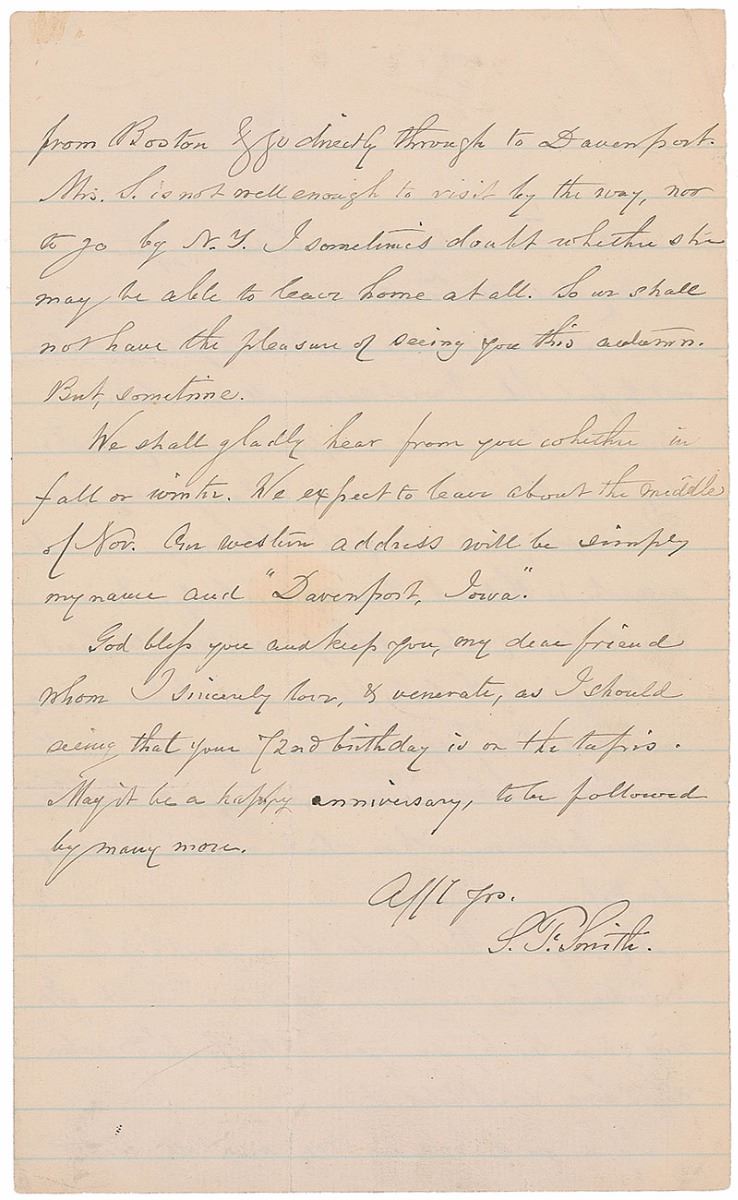 from Boston & go directly through to Davenport.
Mrs. S. is not well enough to visit by the way, nor
to go by N.Y. I sometimes doubt whether she
may be able to leave home at all. So we shall
not have the pleasure of seeing you this autumn.
But, sometime.
We shall gladly hear from you whether in
fall or winter. We expect to leave about the middle
of Nov. Our western address will be simply
my name and "Davenport, Iowa."
God bless you and keep you, my dear friend
whom I sincerely love, & venerate, as I should
seeing that your 72nd birthday is on the tapis.
May it be a happy anniversary, to be followed
by many more.
Afft yrs.
S. F. Smith.